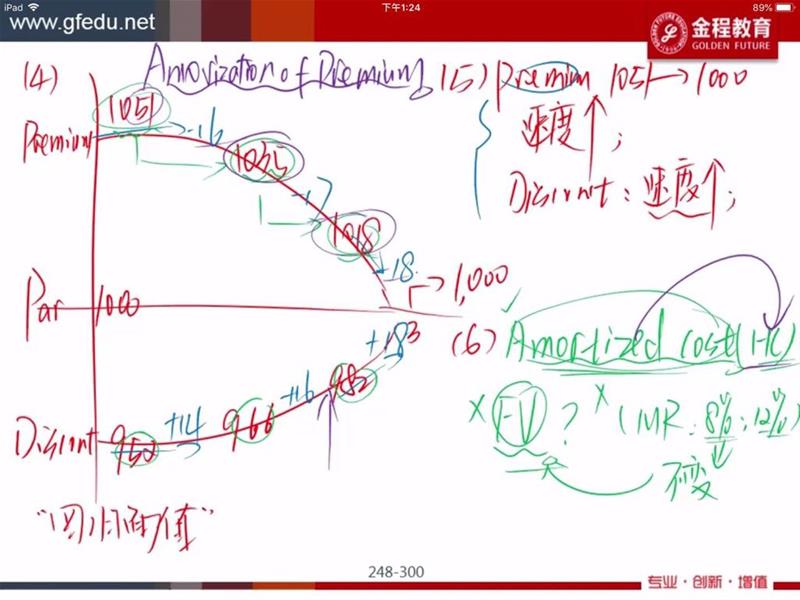 iPad 下午1:24 89%
www.gfedu.net
金程教育
GOLDEN FUTURE
(4) Amorization of Premium
1051
Premium
-16
1035
-17
1018
+18
→1,000
Par 1000
+18 3
982
+16
966
+14
952
Discont
"回归面值"
(5) Premium 1051→1000
速度↑;
Discont: 速度↑;
(6) Amortized cost(HC)
× FV ? × (MR: 8%; 12%)
不变
248-300
专业·创新·增值